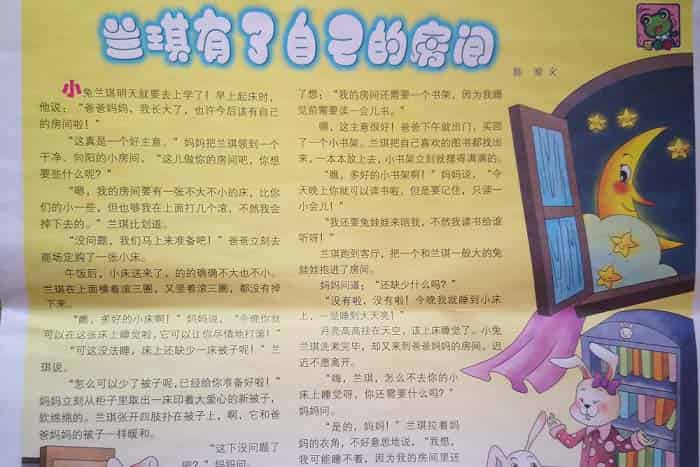 兰琪有了自己的房间
小兔兰琪明天就要去上学了！早上起床时，
他说：“爸爸妈妈，我长大了，也许今后该有自己
的房间啦！”
“这真是一个好主意。”妈妈把兰琪领到一个
干净、向阳的小房间，“这儿做你的房间吧，你想
要些什么呢？”
“嗯，我的房间要有一张不大不小的床，比你
们的小一些，但也够我在上面打几个滚，不然我会
掉下去的。”兰琪比划道。
“没问题，我们马上来准备吧！”爸爸立刻去
商场定购了一张小床。
午饭后，小床送来了，的的确确不大也不小。
兰琪在上面横着滚三圈，又竖着滚三圈，都没有掉
下来。
“瞧，多好的小床啊！”妈妈说，“今晚你就
可以在这张床上睡觉啦，它可以让你尽情地打滚！”
“可这没法睡，床上还缺少一床被子呢！”兰
琪说。
“怎么可以少了被子呢，已经给你准备好啦！”
妈妈立刻从柜子里取出一床印着大爱心的新被子，
软绵绵的。兰琪张开四肢扑在被子上，啊，它和爸
爸妈妈的被子一样暖和。
“这下没问题了
吧？”妈妈问。
了想：“我的房间还需要一个书架，因为我睡
觉前需要读一会儿书。”
嗯，这主意很好！爸爸下午就出门，买回
了一个小书架。兰琪把自己喜欢的图书都找出
来，一本本放上去，小书架立刻就摆得满满的。
“瞧，多好的小书架啊！”妈妈说，“今
天晚上你就可以读书啦，但是要记住，只读一
小会儿！”
“我还要兔娃娃来陪我，不然我读书给谁
听呀！”
兰琪跑到客厅，把一个和兰琪一般大的兔
娃娃抱进了房间。
妈妈问道：“还缺少什么吗？”
“没有啦，没有啦！今晚我就睡到小床
上，一觉睡到大天亮！”
月亮高高挂在天空，该上床睡觉了。小兔
兰琪洗漱完毕，却又来到爸爸妈妈的房间，迟
迟不愿离开。
“嗨，兰琪，怎么不去你的小
床上睡觉呀，你还需要什么吗？”
妈妈问。
“是的，妈妈！”兰琪拉着妈
妈的衣角，不好意思地说，“我想，
我可能睡不着，因为我的房间里还